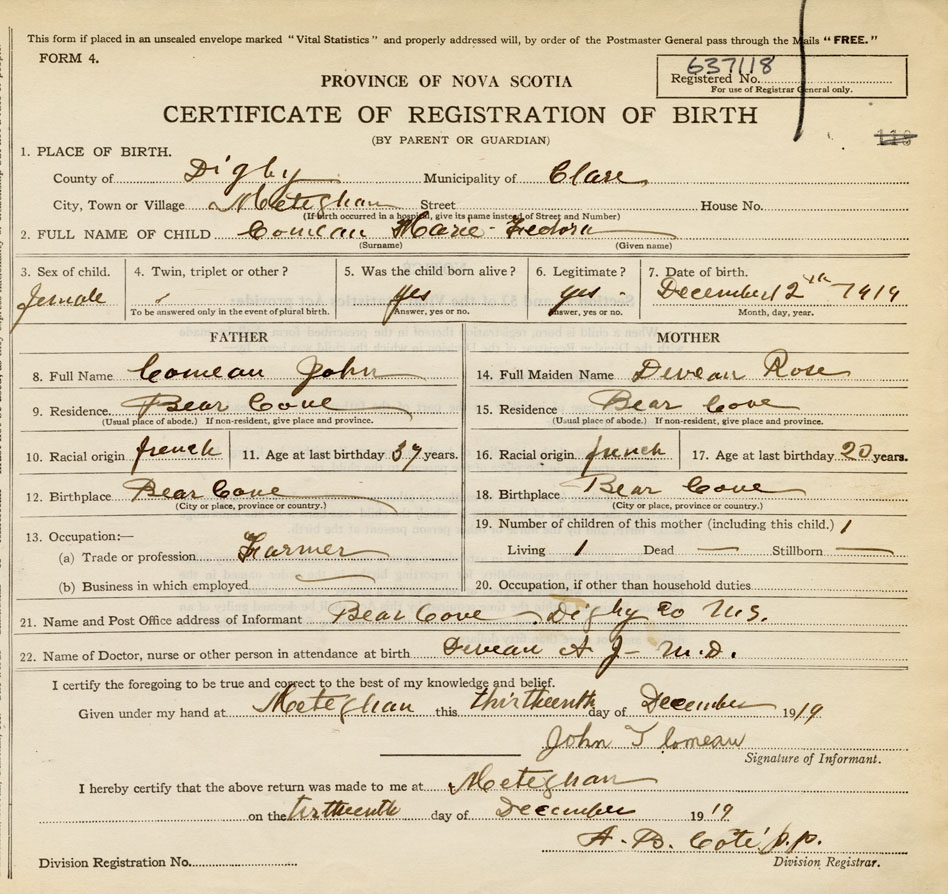 This form if placed in an unsealed envelope marked "Vital Statistics" and properly addressed will, by order of the Postmaster General pass through the Mails "FREE."
FORM 4.
637118
Registered No.
For use of Registrar General only.
PROVINCE OF NOVA SCOTIA
CERTIFICATE OF REGISTRATION OF BIRTH
(BY PARENT OR GUARDIAN)
1. PLACE OF BIRTH.
County of Digby Municipality of Clare
City, Town or Village Meteghan Street House No.
(If birth occurred in a hospital, give its name instead of Street and Number)
2. FULL NAME OF CHILD Comeau Marie-Fedora
(Surname) (Given name)
3. Sex of child. 4. Twin, triplet or other? 5. Was the child born alive? 6. Legitimate? 7. Date of birth.
Female yes yes - December 12th 1919
To be answered only in the event of plural birth. Answer, yes or no. Answer, yes or no. Month, day, year.
FATHER MOTHER
8. Full Name Comeau John 14. Full Maiden Name Deveau Rose
9. Residence. Bear Cove 15. Residence Bear Cove
(Usual place of abode.) If non-resident, give place and province. (Usual place of abode.) If non-resident, give place and province.
10. Racial origin french 11. Age at last birthday 37 years. 16. Racial origin french 17. Age at last birthday 20 years.
12. Birthplace Bear Cove 18. Birthplace Bear Cove
(City or place, province or country.) (City or place, province or country.)
13. Occupation:— 19. Number of children of this mother (including this child.) 1
(a) Trade or profession Farmer Living 1 Dead — Stillborn —
(b) Business in which employed — 20. Occupation, if other than household duties
21. Name and Post Office address of Informant Bear Cove - Digby Co N.S.
22. Name of Doctor, nurse or other person in attendance at birth Deveau A J- M.D.
I certify the foregoing to be true and correct to the best of my knowledge and belief.
Given under my hand at Meteghan this thirteenth day of December 1919
John T Comeau
Signature of Informant.
I hereby certify that the above return was made to me at Meteghan
on the day of December 19 19
A. B. Coté p.p.
Division Registration No. Division Registrar.